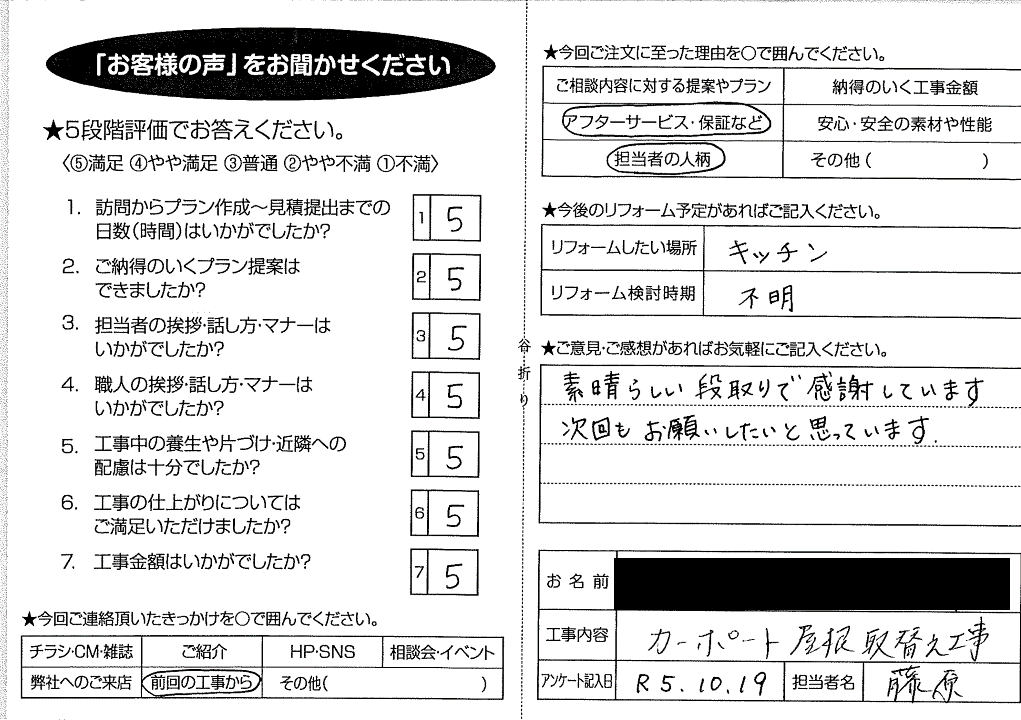 「お客様の声」をお聞かせください
★5段階評価でお答えください。
〈⑤満足 ④やや満足 ③普通 ②やや不満 ①不満〉
1. 訪問からプラン作成～見積提出までの
日数(時間)はいかがでしたか? 1 5
2. ご納得のいくプラン提案は
できましたか? 2 5
3. 担当者の挨拶・話し方・マナーは
いかがでしたか? 3 5
4. 職人の挨拶・話し方・マナーは
いかがでしたか? 4 5
5. 工事中の養生や片づけ・近隣への
配慮は十分でしたか? 5 5
6. 工事の仕上がりについては
ご満足いただけましたか? 6 5
7. 工事金額はいかがでしたか? 7 5
★今回ご連絡頂いたきっかけを○で囲んでください。
チラシ・CM・雑誌 ご紹介 HP・SNS 相談会・イベント
弊社へのご来店 前回の工事から その他( )
谷折り
★今回ご注文に至った理由を○で囲んでください。
ご相談内容に対する提案やプラン 納得のいく工事金額
アフターサービス・保証など 安心・安全の素材や性能
担当者の人柄 その他( )
★今後のリフォーム予定があればご記入ください。
リフォームしたい場所 キッチン
リフォーム検討時期 不明
★ご意見・ご感想があればお気軽にご記入ください。
素晴らしい段取りで感謝しています
次回もお願いしたいと思っています.
お名前
工事内容 カーポート屋根取替え工事
アンケート記入日 R5.10.19 担当者名 藤原